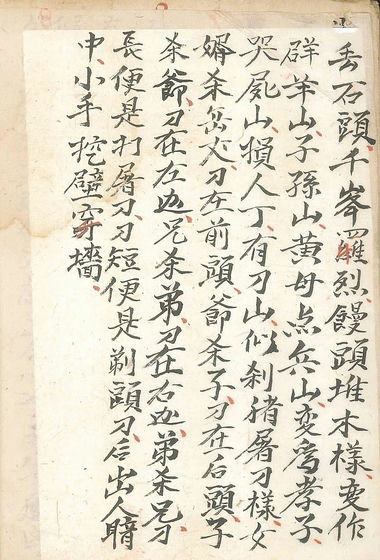 丢石頭千峯羅烈饅頭堆木樣变作
群羊山子孫山黄母点兵山変為孝子
哭屍山損人丁有刀山似刹猪屠刀様女
婿杀岳丈刀在前頭爺杀子刀在后頭子
杀爺刀在左边兄杀弟刀在右边弟杀兄刀
長便是打屠刀刀短便是剃頭刀后出人暗
中小手挖壁穿墻